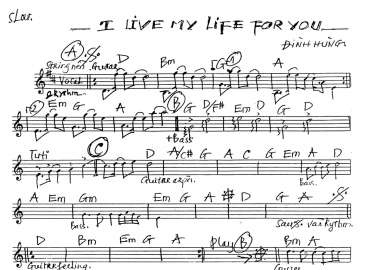 Slow.
I LIVE MY LIFE FOR YOU
ĐÌNH HÙNG
A D Bm G A
String nền Guitar
Vocal
Rhythm.
Em G A B G D/F# Em D G
+bass
Tutti C D A/C# G A C G Em A D
Bass.
A Em Gm Em G A D G A
Bass.
D Bm Em G A play B Bm A
Guitar feeling.
Guitar